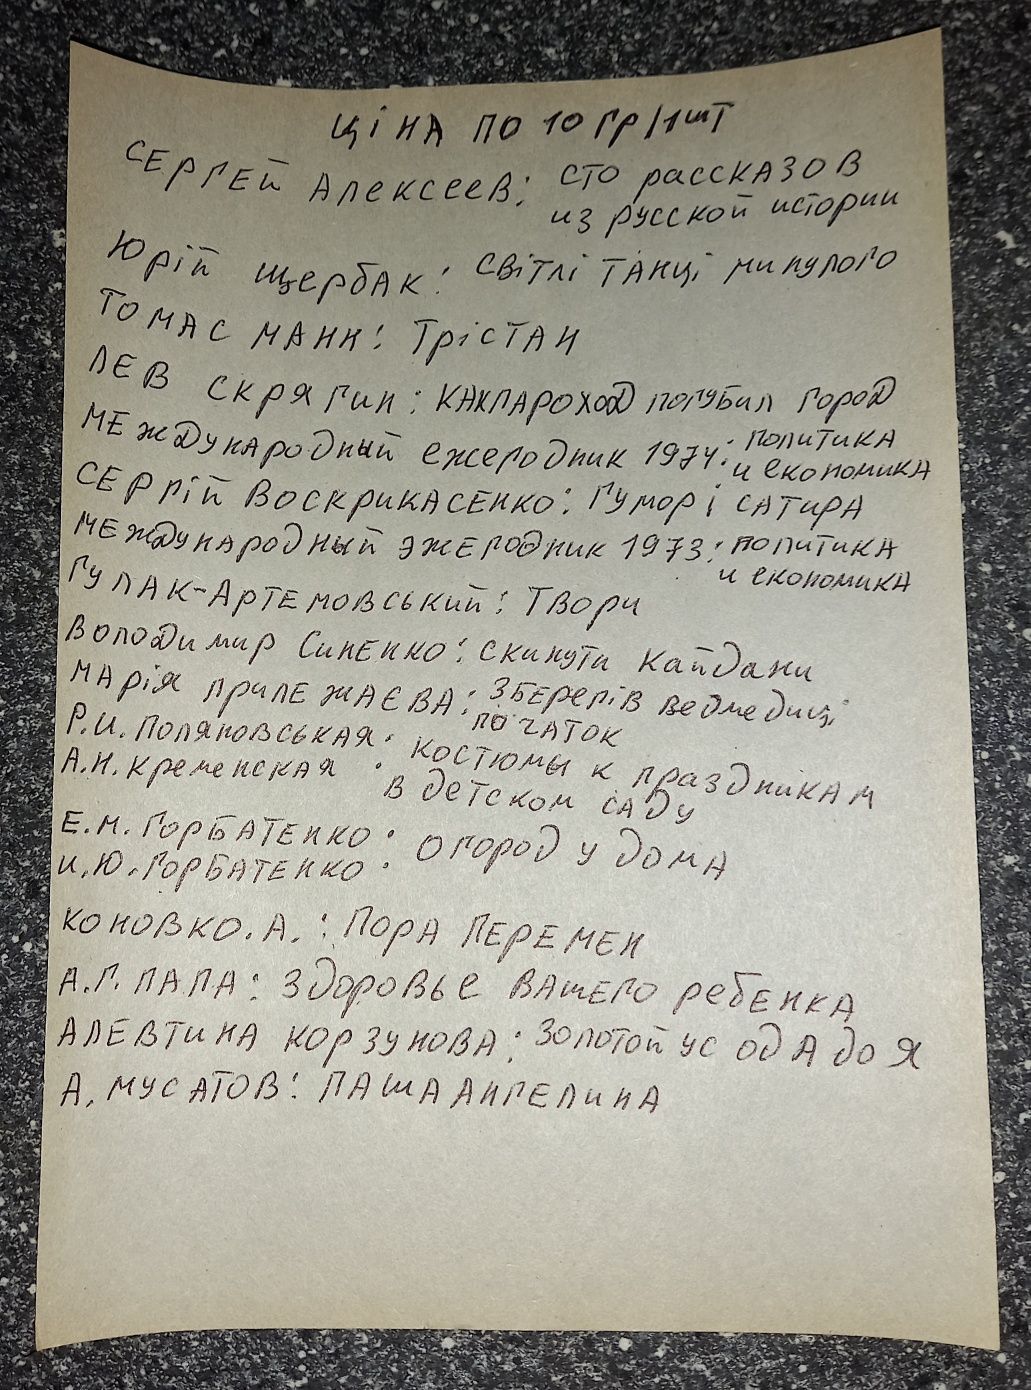 ЦІНА ПО 10 ГР/1ШТ
СЕРГЕЙ АЛЕКСЕЕВ: СТО РАССКАЗОВ
ИЗ РУССКОЙ ИСТОРИИ
ЮРІЙ ЩЕРБАК: СВІТЛІ ТАНЦІ МИНУЛОГО
ТОМАС МАНН: ТРІСТАН
ЛЕВ СКРЯГИН: КАК ПАРОХОД ПОГУБИЛ ГОРОД
МЕЖДУНАРОДНЫЙ ЕЖЕГОДНИК 1974: ПОЛИТИКА
И ЕКОНОМИКА
СЕРГІЙ ВОСКРИКАСЕНКО: ГУМОР І САТИРА
МЕЖДУНАРОДНЫЙ ЭЖЕГОДНИК 1973: ПОЛИТИКА
И ЕКОНОМИКА
ГУЛАК-АРТЕМОВСЬКИЙ: ТВОРИ
ВОЛОДИМИР СИНЕНКО: СКИНУТИ КАЙДАНИ
МАРІЯ ПРИЛЕЖАЄВА: ЗБЕРЕГІВ ВЕДМЕДИЦІ
ПОЧАТОК
Р.И. ПОЛЯНОВСЬКАЯ: КОСТЮМЫ К ПРАЗДНИКАМ
А.Н. КРЕМЕНСКАЯ В ДЕТСКОМ САДУ
Е.М. ГОРБАТЕНКО: ОГОРОД У ДОМА
И.Ю. ГОРБАТЕНКО
КОНОВКО.А.: ПОРА ПЕРЕМЕН
А.Г. ПАПА: ЗДОРОВЬЕ ВАШЕГО РЕБЕНКА
АЛЕВТИНА КОРЗУНОВА: ЗОЛОТОЙ УС ОД А ДО Я
А, МУСАТОВ: ПАША АНГЕЛИНА